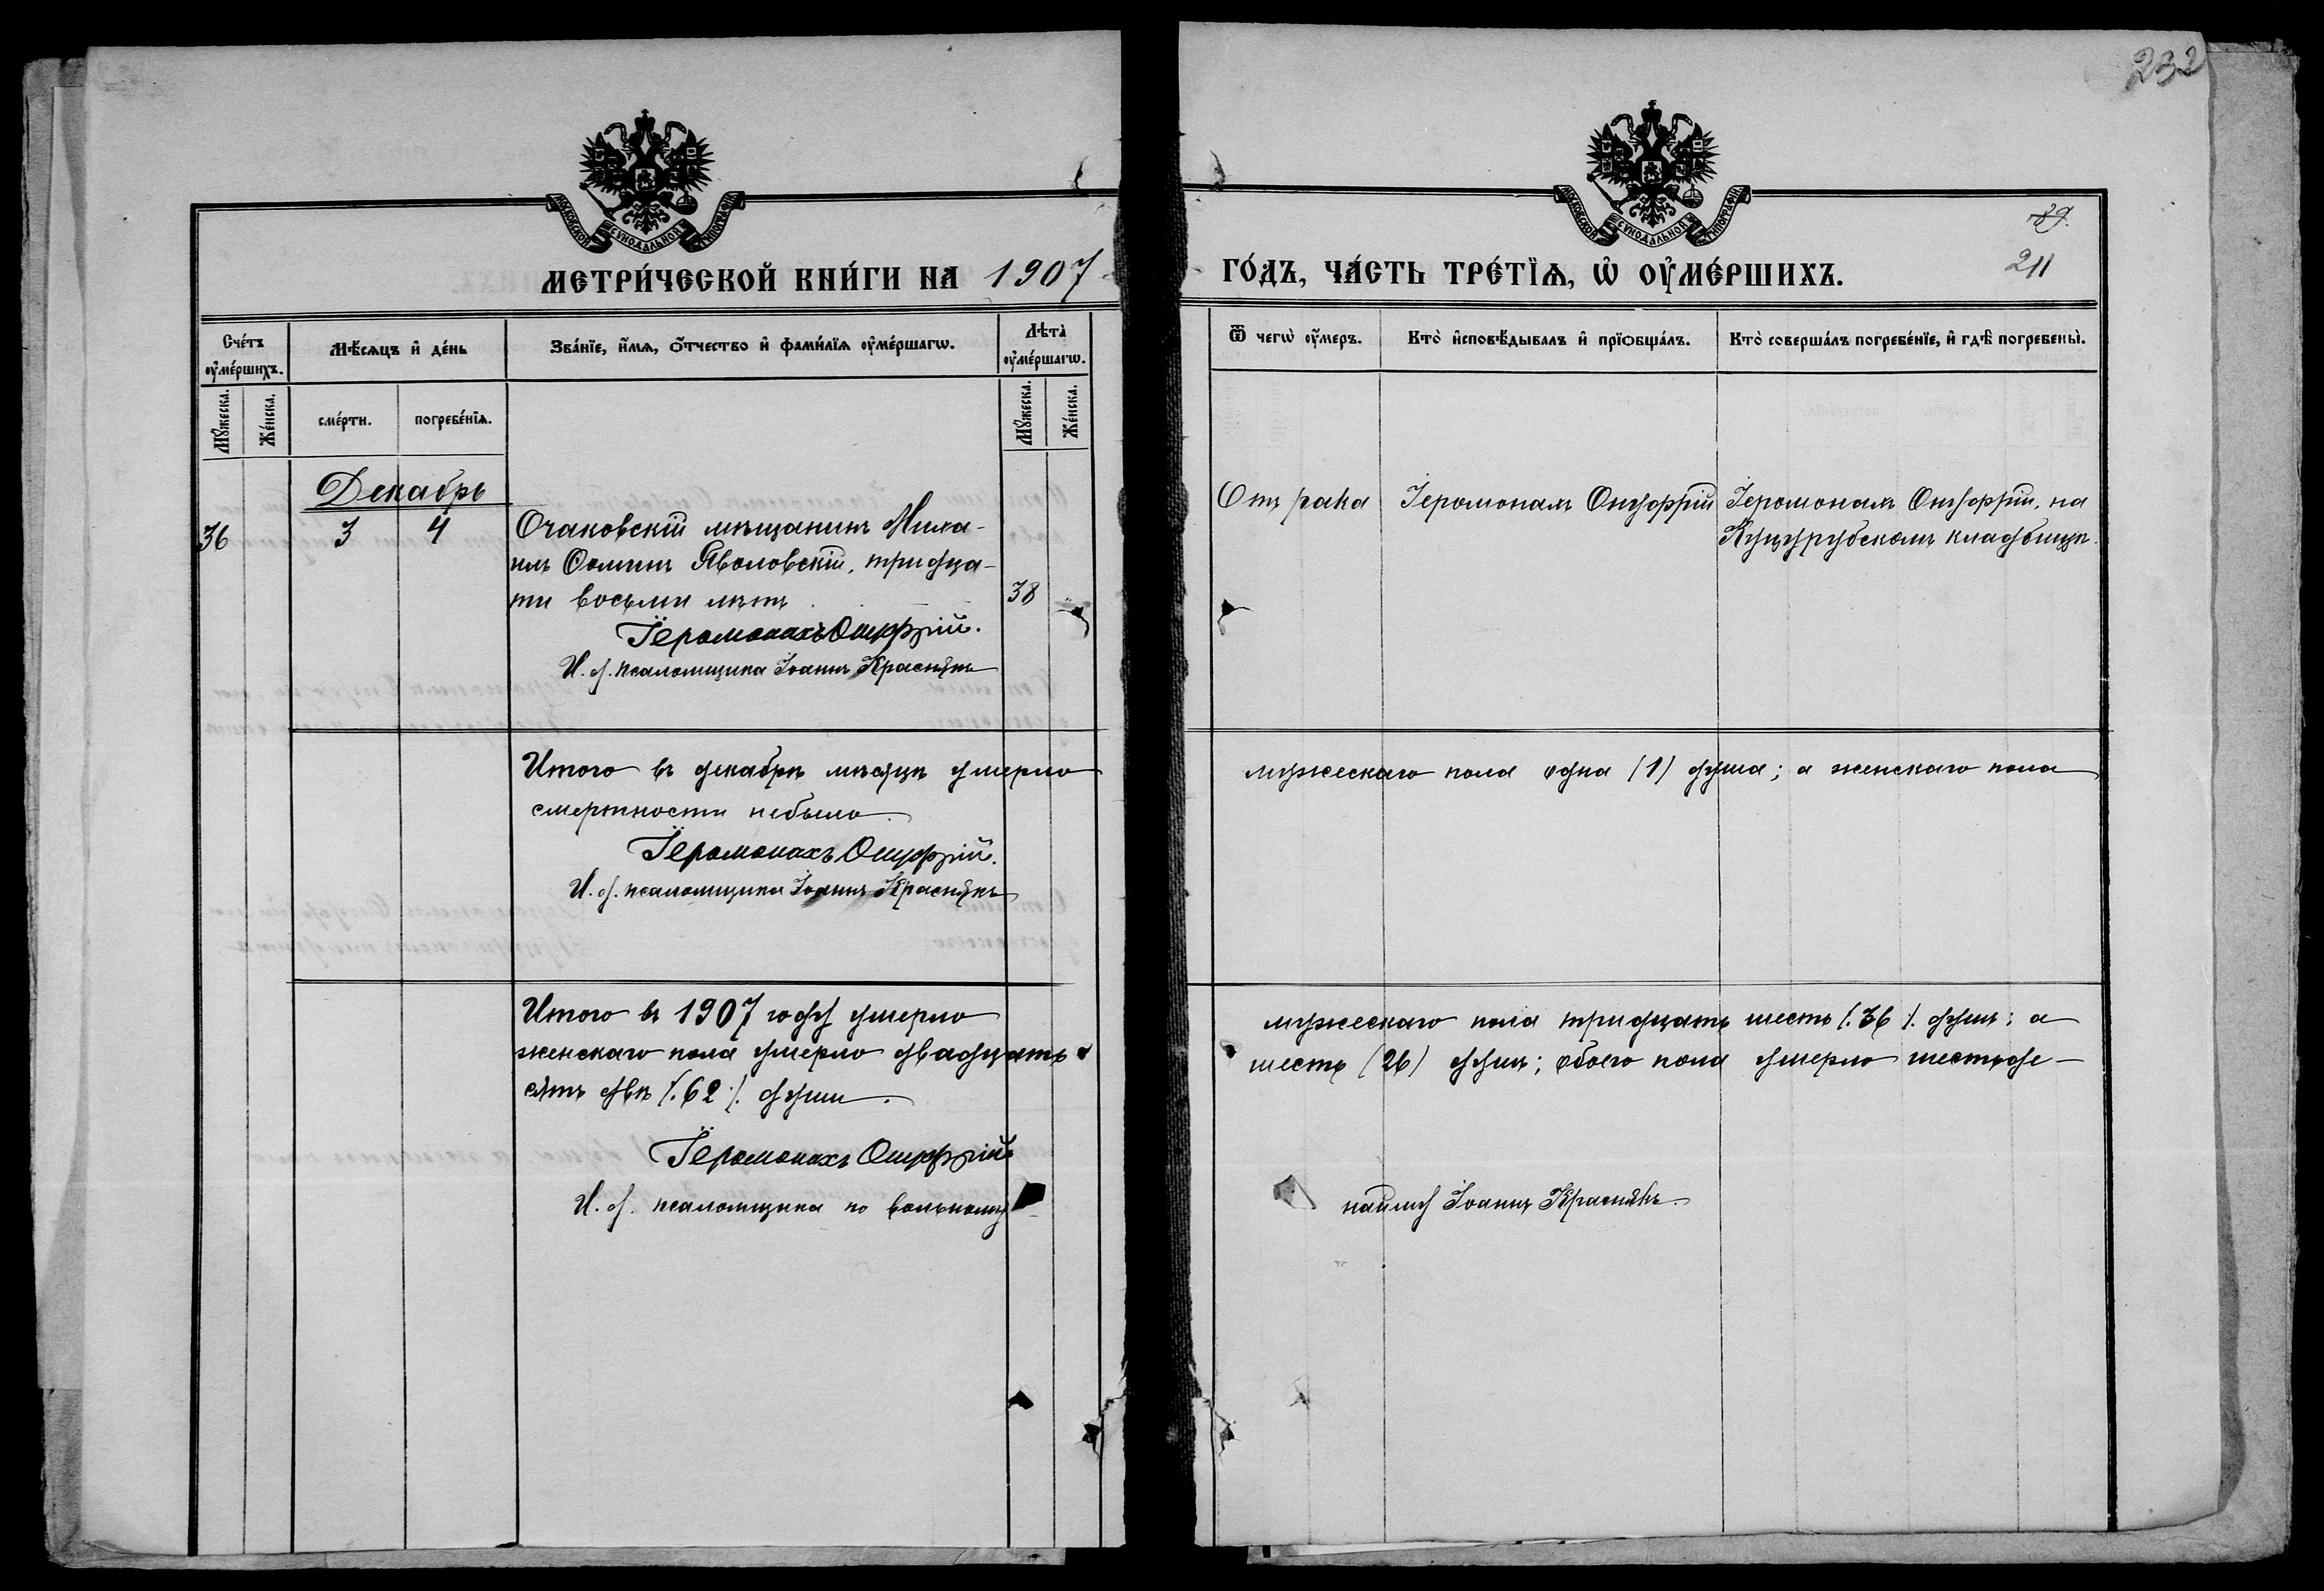 232
МОСКОВСКОЙ СѴНОДАЛЬНОЙ ТИПОГРАФІИ
МОСКОВСКОЙ СѴНОДАЛЬНОЙ ТИПОГРАФІИ
МЕТРИ́ЧЕСКОЙ КНИ́ГИ НА 1907
ГО́ДЪ, ЧА́СТЬ ТРЕ́ТЇѦ, Ѡ҆ ОУ҆МЕ́РШИХЪ.
211
Сче́тъ оу҆ме́ршихъ.
Мѣ́сѧцъ и҆ де́нь
Зва́нїе, и҆́мѧ, ѻ҆́тчество и҆ фами́лїѧ оу҆ме́ршагѡ.
Лѣта̀ оу҆ме́ршагѡ.
Ѿ чегѡ̀ оу҆́меръ.
Кто̀ и҆сповѣ́дывалъ и҆ прїѡбща́лъ.
Кто̀ соверша́лъ погребе́нїе, и҆ гдѣ̀ погребены̀.
Мꙋ́жеска.
Же́нска.
сме́рти.
погребе́нїѧ.
Мꙋ́жеска.
Же́нска.
Декабрь
36 3 4 Очаковскій мѣщанинъ Миха-
илъ Ѳоминъ Яволовскій, тридца-
ти восьми лѣтъ 38
Іеромонахъ Онуфрій.
И. д. псаломщика Іоаннъ Краснякъ
Отъ рака
Іеромонахъ Онуфрій
Іеромонахъ Онуфрій, на
Куцурубскомъ кладбищѣ.
Итого въ декабрѣ мѣсяцѣ умерло
мужескаго пола одна (1) душа; а женскаго пола
смертности небыло.
Іеромонахъ Онуфрій.
И. д. псаломщика Іоаннъ Краснякъ
Итого въ 1907 году умерло
мужескаго пола тридцать шесть /.36/. душъ; а
женскаго пола умерло двадцать
шесть (26) душъ; обоего пола умерло шестьде-
сятъ двѣ /.62/. души.
Іеромонахъ Онуфрій.
И. д. псаломщика по вольному
найму Іоаннъ Краснякъ.